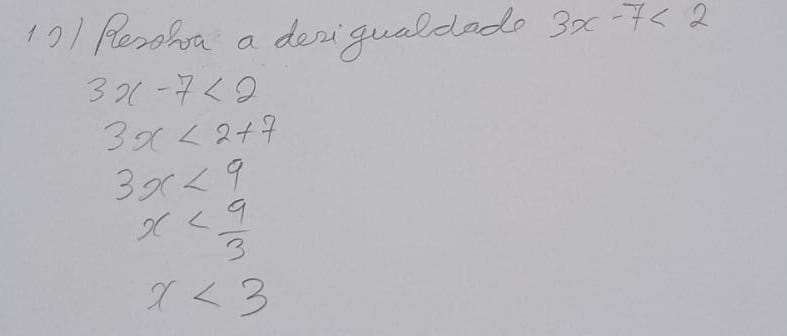 10) Resolva a desigualdade 3x - 7 < 2
3x - 7 < 2
3x < 2 + 7
3x < 9
x < 9/3
x < 3